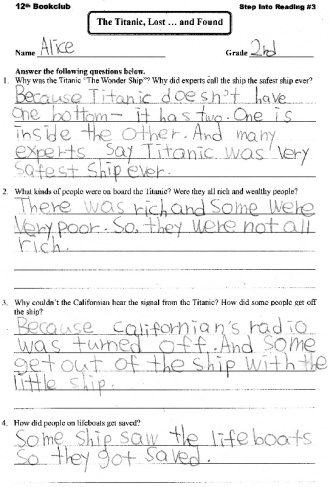 12th Bookclub Step Into Reading #3
The Titanic, Lost ... and Found
Name Alice Grade 2nd
Answer the following questions below.
1. Why was the Titanic "The Wonder Ship"? Why did experts call the ship the safest ship ever?
Because Titanic doesn't have
one bottom - it has two. One is
inside the other. And many
experts say Titanic was very
safest ship ever.
2. What kinds of people were on board the Titanic? Were they all rich and wealthy people?
There was rich and some were
very poor. So, they were not all
rich.
3. Why couldn't the Californian hear the signal from the Titanic? How did some people get off
the ship?
Because Californian's radio
was turned off. And some
get out of the ship with the
little ship.
4. How did people on lifeboats get saved?
Some ship saw the lifeboats
So they got saved.